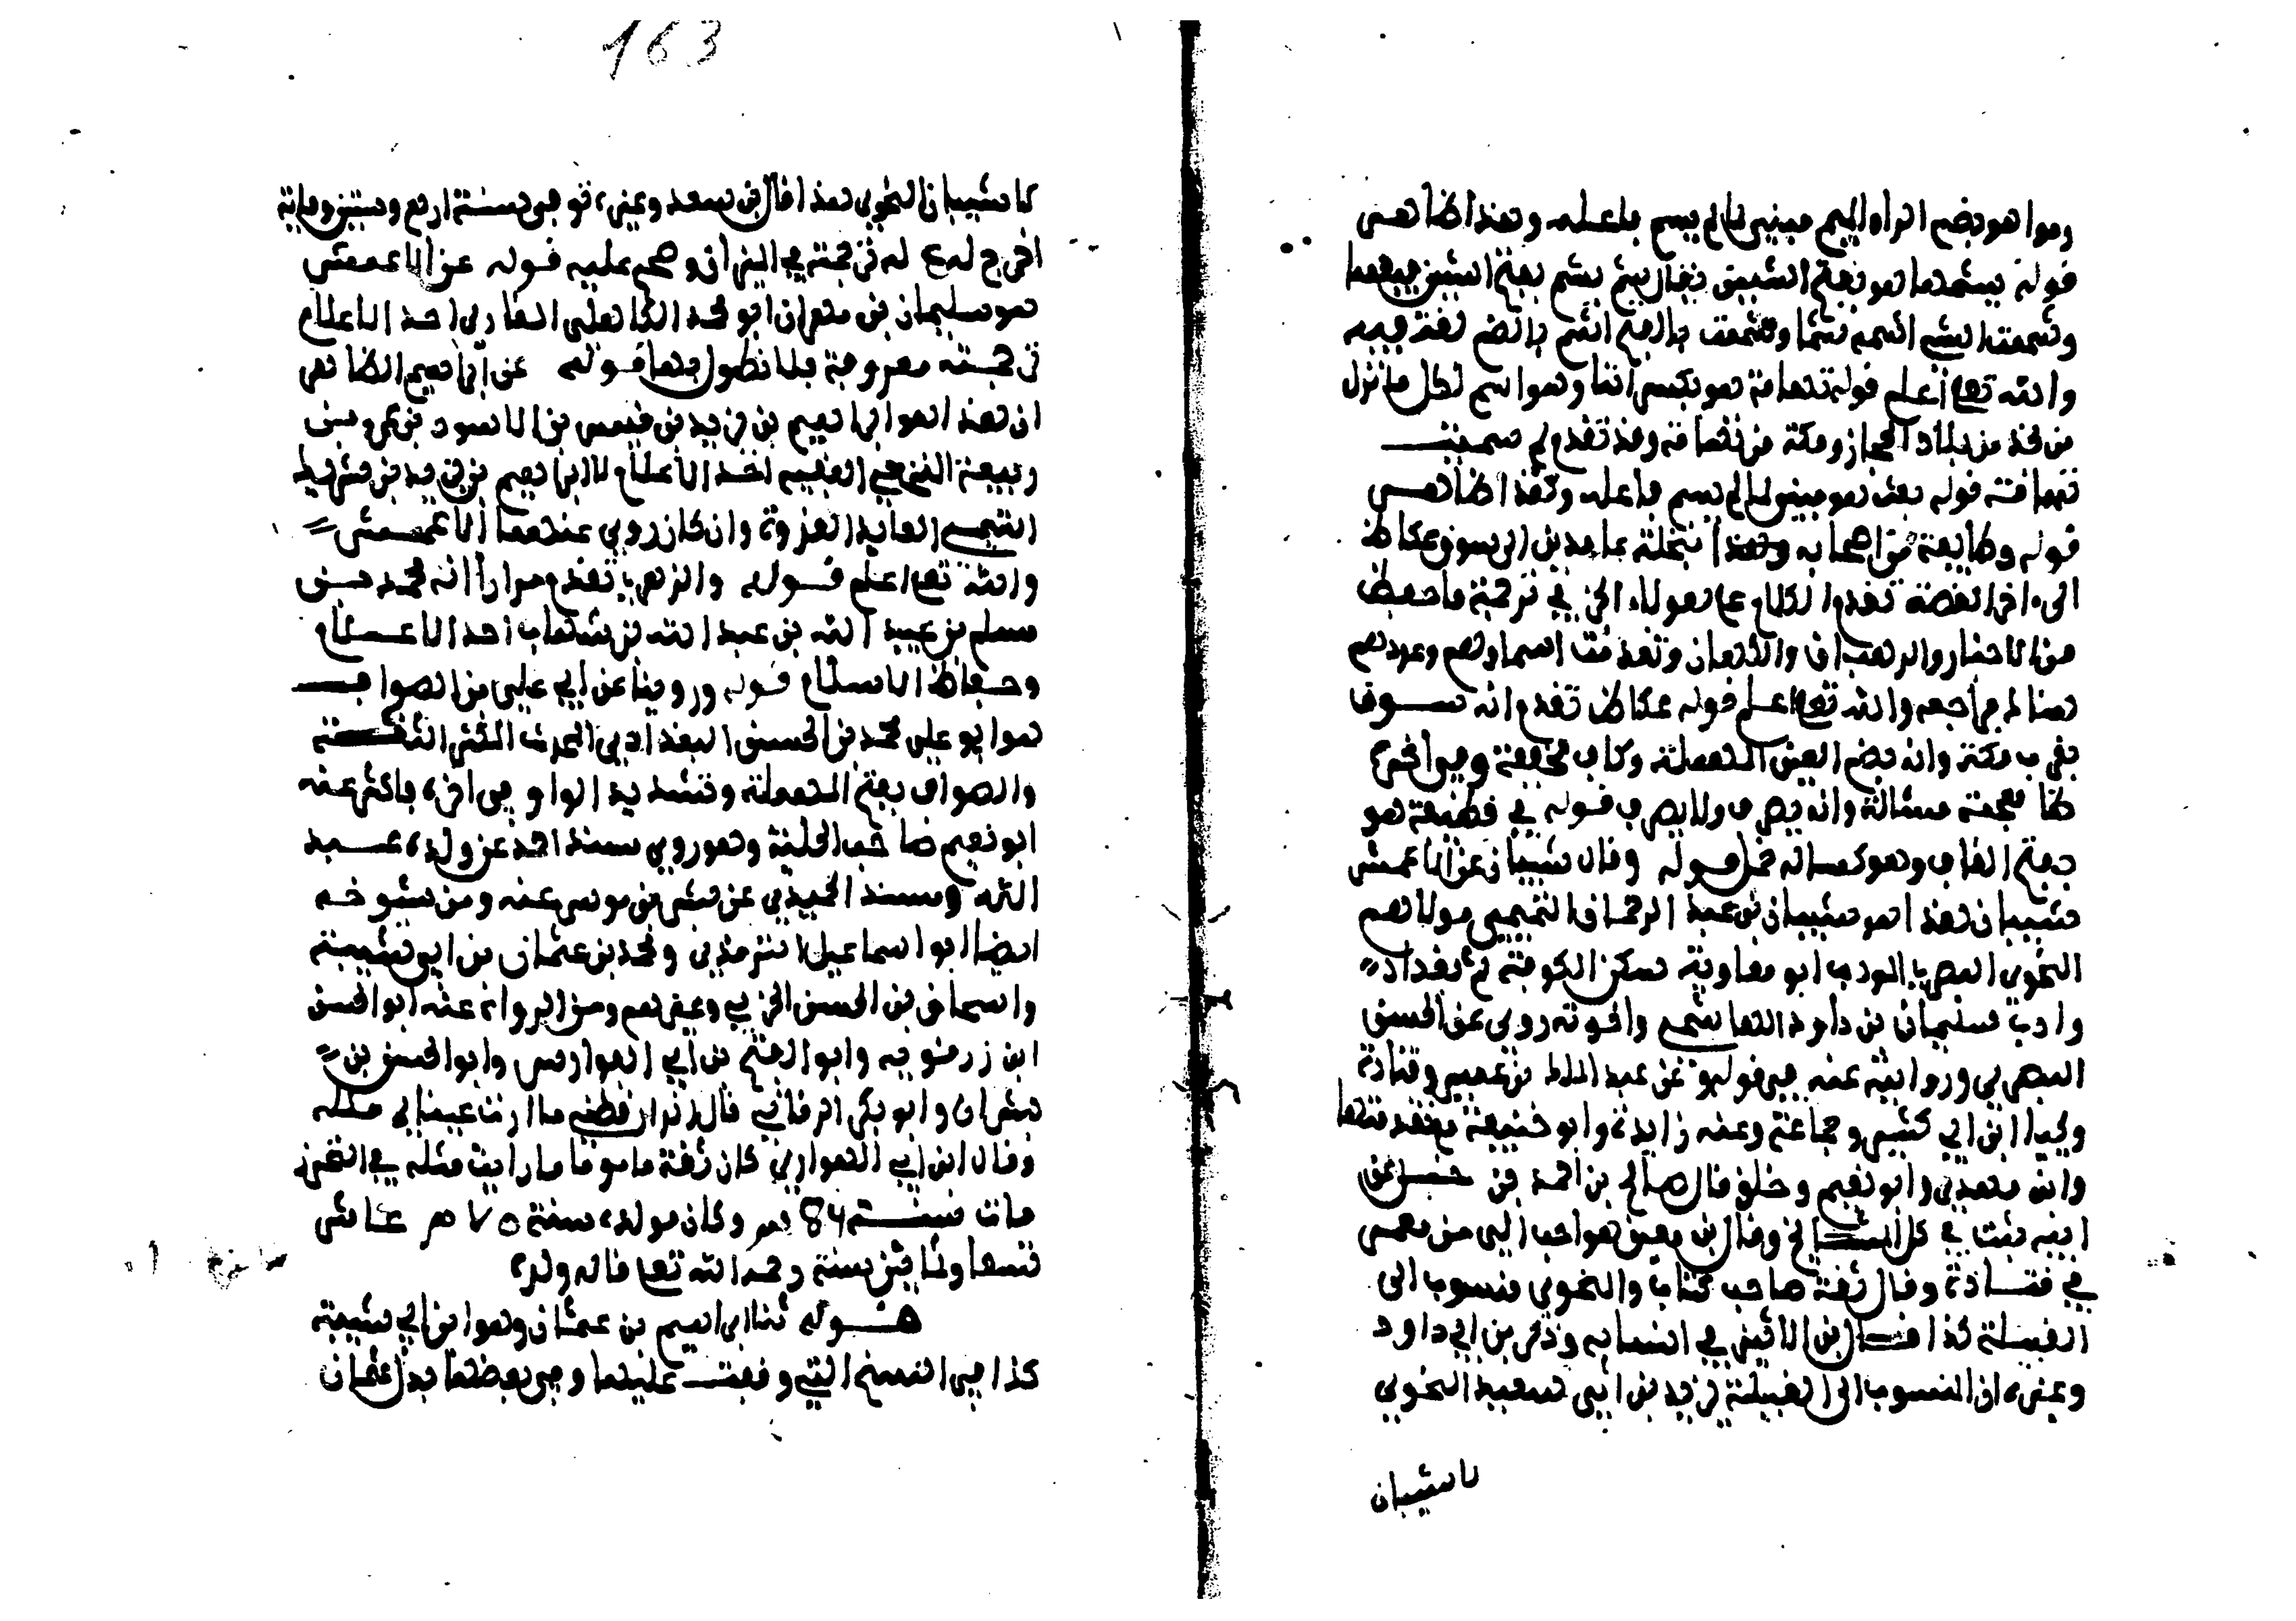 رموا هو بضم الراء والميم مبني لما لم يسم فاعله وهذا ظاهر
قوله يشمها هو بفتح الشين يقال شم يشم بفتح الشين
وشممت الشيء اشمه شما وشممت بالفتح اشم بالضم لغة فيه
والله تعلى أعلم قوله تهامة هو بكسر التا وهو اسم لكل ما نزل
من نجد من بلاد الحجاز ومكة من تهامة وقد تقدم لم سميت
تهامة قوله بعث هو مبني لما لم يسم فاعله وهذا ظاهر
قوله وطايفة من اصحابه بنخلة عامدين الى سوق عكاظ
الى اخر القصة تقدم الكلام على هولاء الجن في ترجمة ما حفظ
من الاحبار والرهبان والكهان وتقدمت اسماؤهم وعددهم
هنالك فراجعه والله تعلى اعلم قوله عكاظ تقدم انه سوق
بقرب مكة وانه بضم العين المهملة وكاف مخففة وفي اخره
ظا معجمة مشالة وانه يصرف ولا يصرف قوله في قطيفة هو
بفتح القاف وهو كساله خمل قوله وقال شيبان عن الاعمش
شيبان هذا هو شيبان بن عبد الرحمان التميمي مولاهم
النحوي البصري المودب ابو معاوية سكن الكوفة ثم بغداد
وادب سليمان بن داود الهاشمي واخوته روى عن الحسن
البصري وروايته عنه في وعن عبد الملك بن عمير وقتادة
ويحيا ابن ابي كثير وجماعة وعنه زايدة وابو حنيفة
وابن مهدي وابو نعيم وخلق قال صالح بن احمد بن حنبل عن
ابيه ثبت في كل المشايخ وقال بن معين هو احب الي من معمر
في قتادة وقال ثقة صاحب كتاب والنحوي منسوب الى
القبيلة كذا قال بن الاثير في انسابه وذكر بن ابي داود
وغيره ان المنسوب الى القبيلة يزيد بن ابي سعيد النحوي
لا شيبان
163
لا شيبان النحوي هذا قال بن سعد وغيره توفي سنة اربع وستين وماية
اخرج له ع له ترجمة في الميزان وصح عليه قوله عن الاعمش
هو سليمان بن مهران ابو محمد الكاهلي القاري احد الاعلام
ترجمته معروفة فلا نطول بها قوله عن ابراهيم الظاهر
ان هذا هو ابراهيم بن يزيد بن قيس بن الاسود بن عمرو بن
ربيعة النخعي الفقيه احد الاعلام لا ابراهيم بن يزيد بن شريك
التيمي العابد القدوة وان كان روى عنهما الاعمش
والله تعلى اعلم قوله والزهري تقدم مرارا انه محمد بن
مسلم بن عبيد الله بن عبد الله بن شهاب احد الاعلام
وحفاظ الاسلام قوله وروينا عن ابي علي بن الصواف
هو ابو علي محمد بن الحسن البغدادي المحدث المكثر الثقة
والصواف بفتح المهملة وتشديد الواو وفي اخره فا اكثر عنه
ابو نعيم صاحب الحلية وهو روى مسند احمد عن ولده عبد
الله ومسند الحميدي عن بشر بن موسى عنه ومن شيوخه
ايضا ابو اسماعيل الترمذي ومحمد بن عثمان بن ابي شيبة
واسحاق بن الحسن الحربي وغيرهم ومن الرواة عنه ابو الحسن
ابن زرقويه وابو الفتح بن ابي الفوارس وابو الحسن بن
بشران وابو بكر البرقاني قال الدارقطني ما رات عيناي مثله
وقال ابن ابي الفوارس كان ثقة مامونا ما رايت مثله في التحرز
مات سنة وكان مولده سنة عاش
تسعا وثمانين سنة رحمه الله تعلى قاله ولده
قوله ثنا ابراهيم بن عثمان وهو ابن ابي شيبة
كذا في النسخ التي وقفت عليها وفي بعضها بدل عثمان